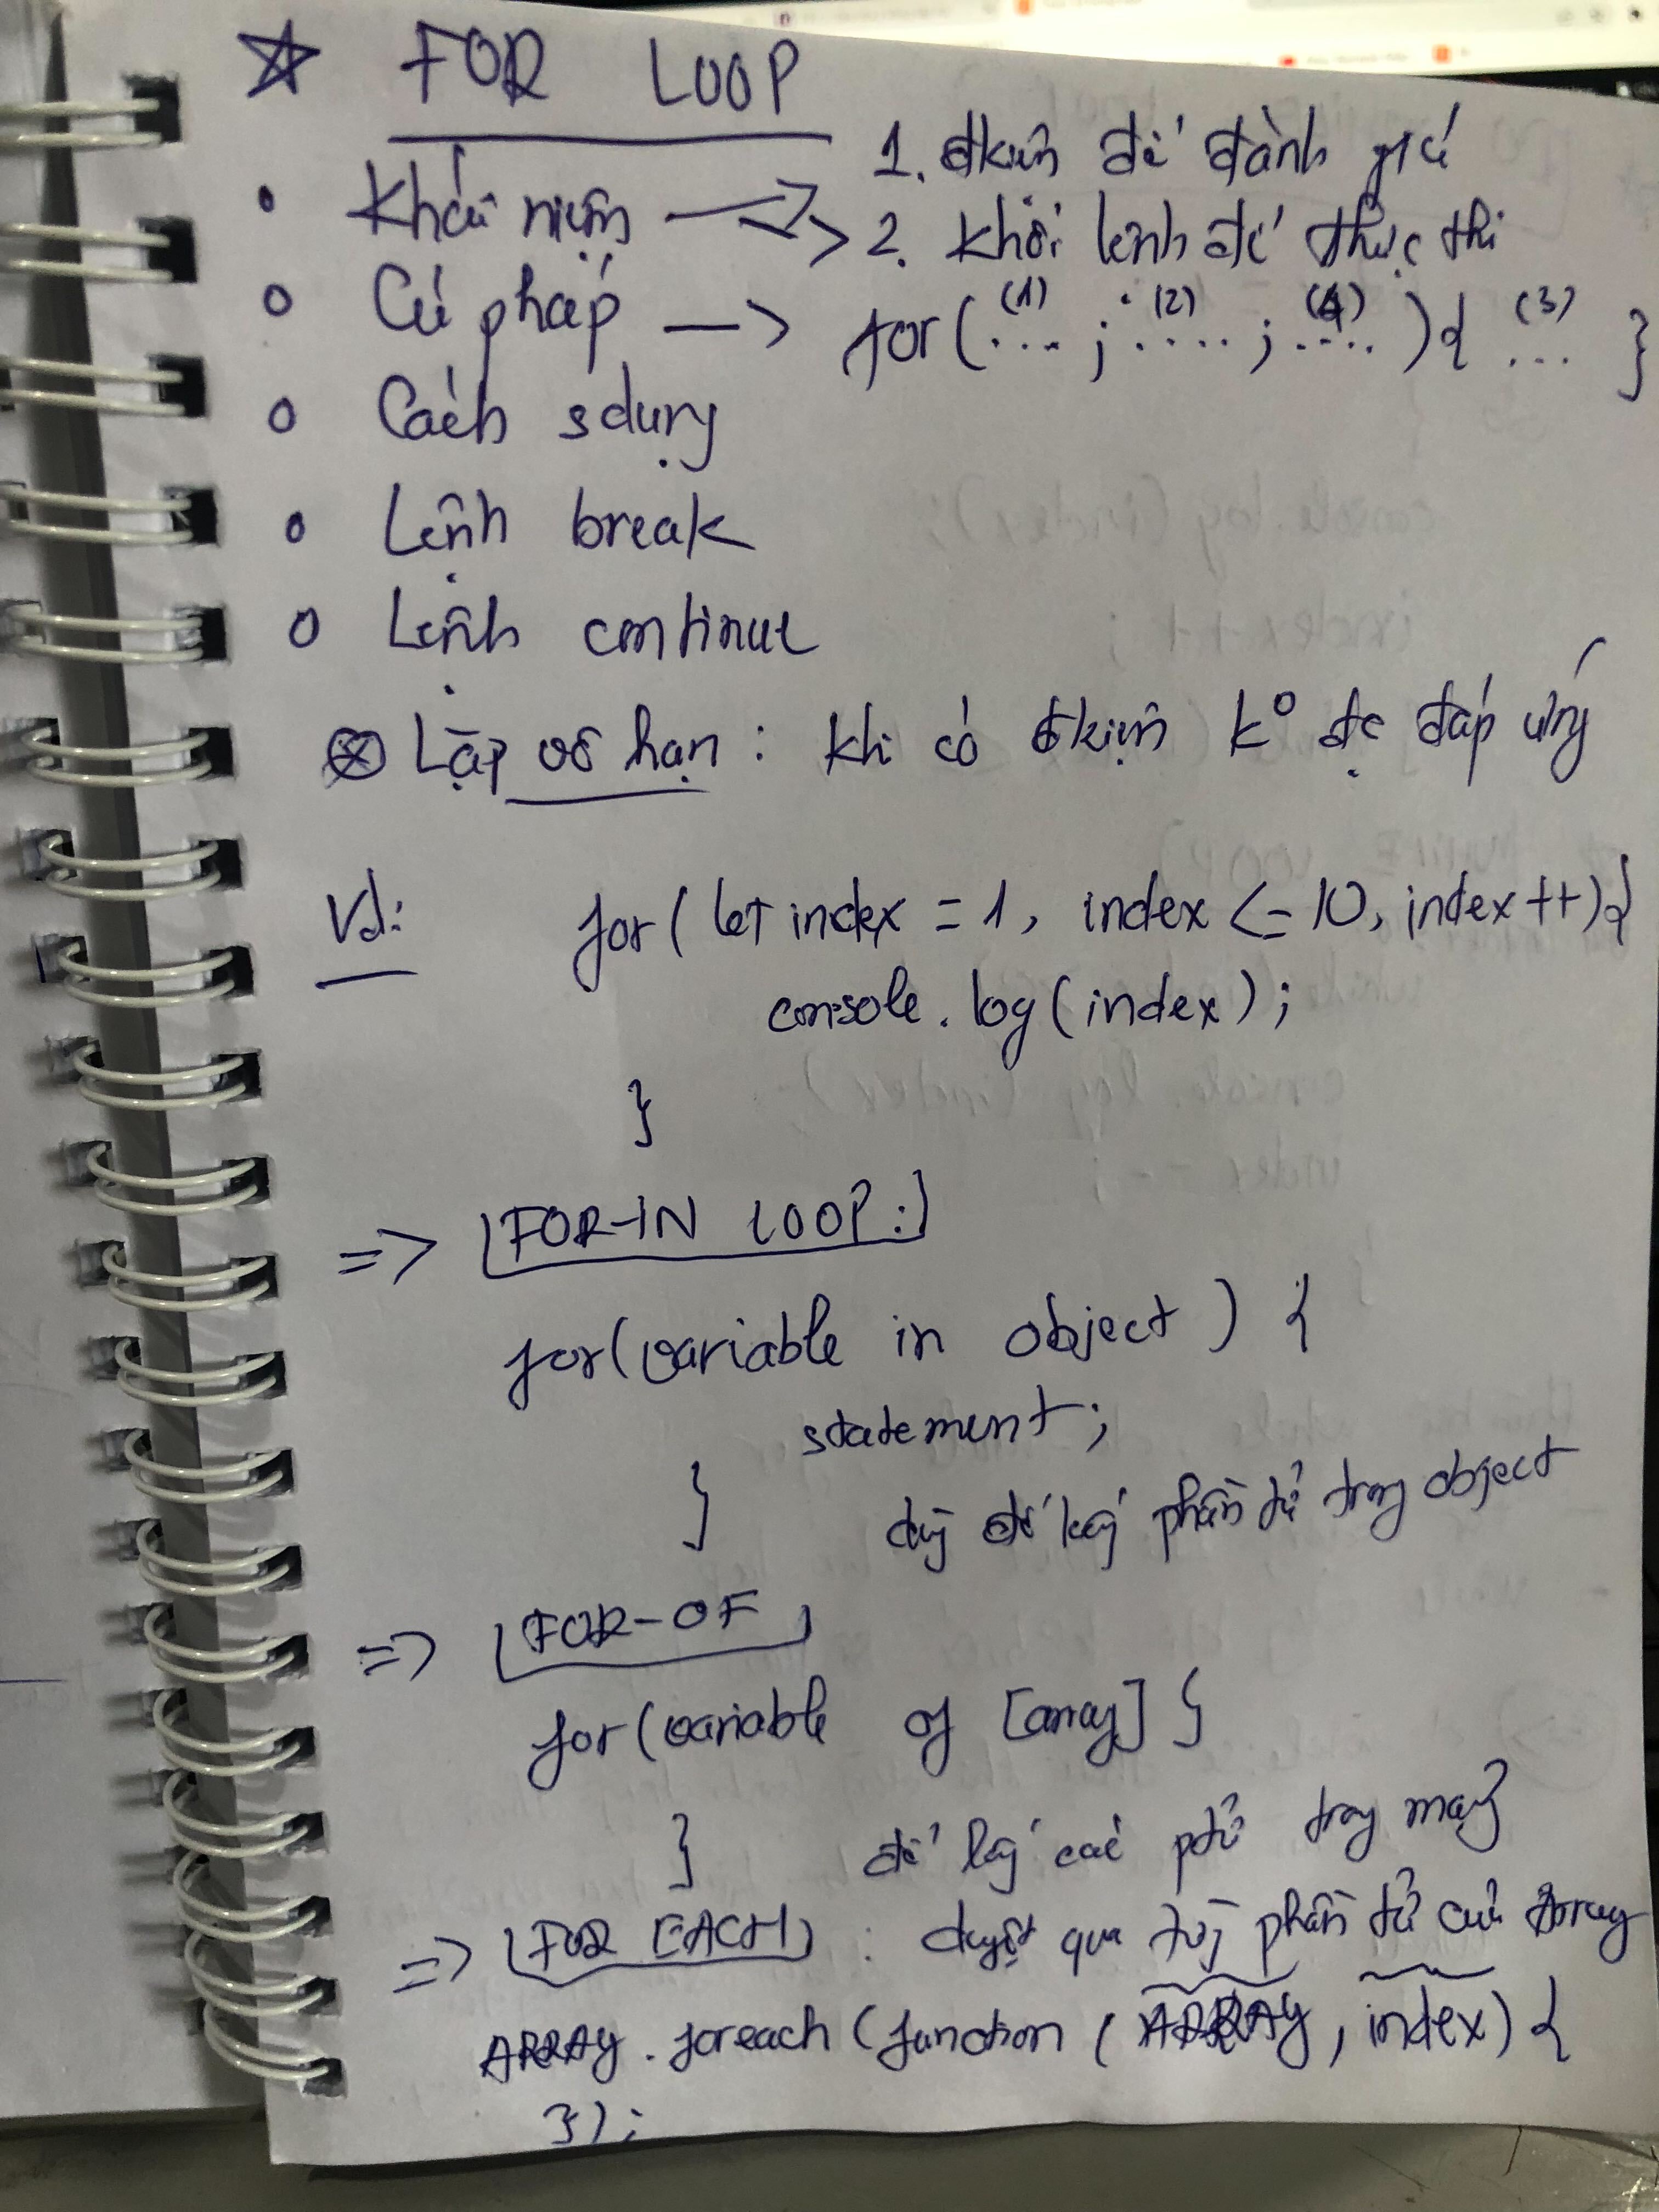 ☆ FOR LOOP
• Khái niệm —> 1. đkiện để đánh giá
> 2. khối lệnh để thực thi
o Cú pháp —> for(.(1).. ; .(2)... ; .(4)... ){ .(3).. }
o Cách sdụng
o Lệnh break
o Lệnh continue
⊗ Lặp vô hạn : khi có đkiện k° đc đáp ứng
Vd: for( let index = 1, index <= 10, index ++){
console.log(index);
}
=> FOR-IN LOOP:
for(variable in object ) {
statement;
} dùng để lấy phần tử trong object
=> FOR-OF
for(variable of [array] {
} để lấy các ptử trong mảng
=> FOR EACH : duyệt qua từng phần tử của Array
ARRAY.foreach (function ( ARRAY, index) {
});